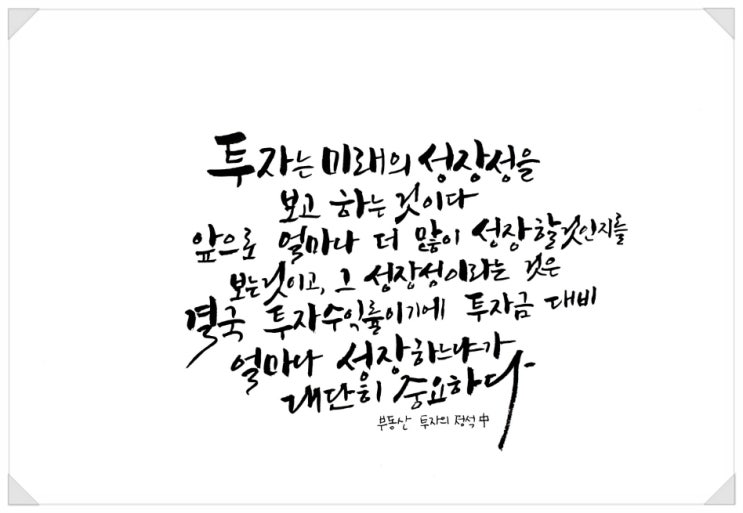 투자는 미래의 성장성을
보고 하는 것이다
앞으로 얼마나 더 많이 성장할것인지를
보는것이고, 그 성장성이라는 것은
결국 투자수익률이기에 투자금 대비
얼마나 성장하느냐가
대단히 중요하다.
부동산 투자의 정석 中